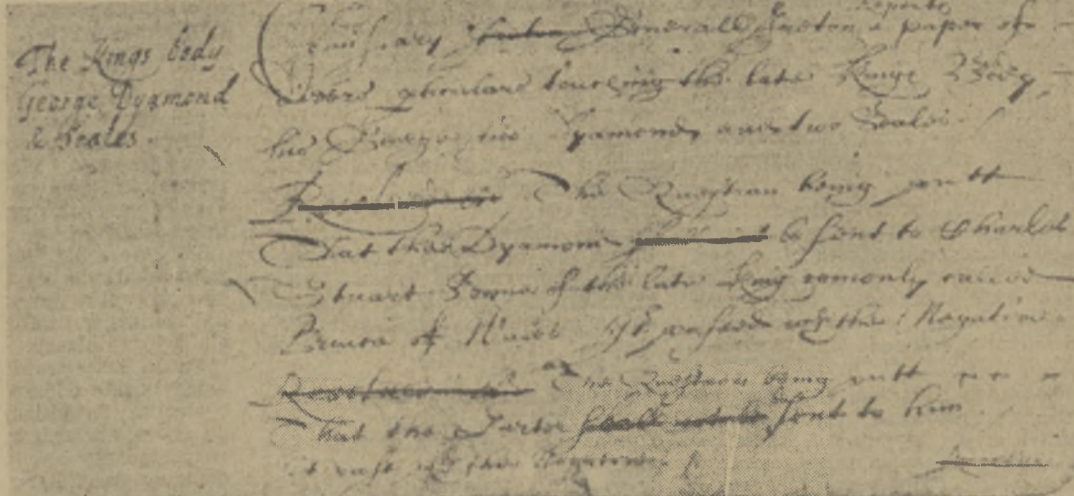 The Kings body
George, Dyamond
& Seales.
Comissary Generall Ireton reports a paper of
divers pticulars touching the late Kings Body,
his George, his Dyamond, and two Seales.
The Question being putt
That the Dyamond be sent to Charles
Stuart Sonne of the late King comonly called
Prince of Wales It passed with the Negative.
The Question being putt
That the Garter sent to him
It past with the Negative.